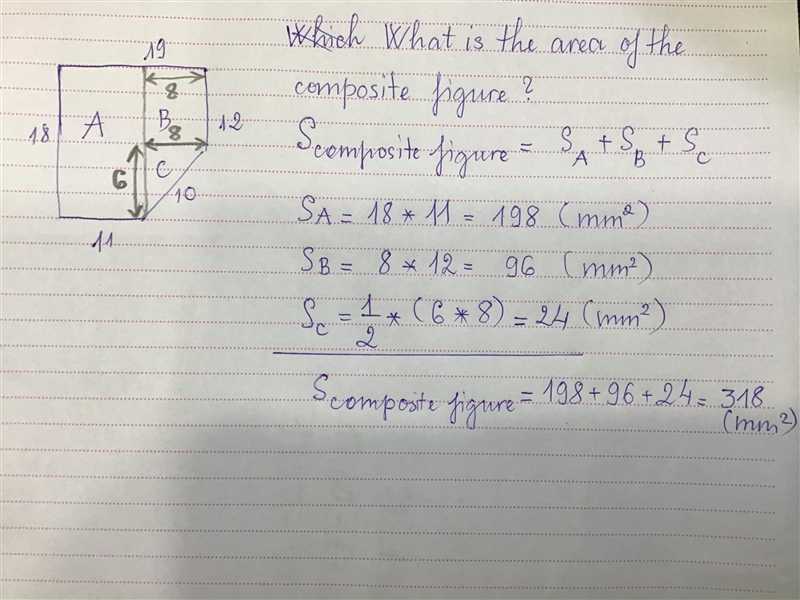 19
8
A
B
18
8
12
6
C
10
11
What is the area of the
composite figure ?
S composite figure = S_A + S_B + S_C
S_A = 18 * 11 = 198 (mm²)
S_B = 8 * 12 = 96 (mm²)
S_C = 1/2 * (6 * 8) = 24 (mm²)
S composite figure = 198 + 96 + 24 = 318
(mm²)